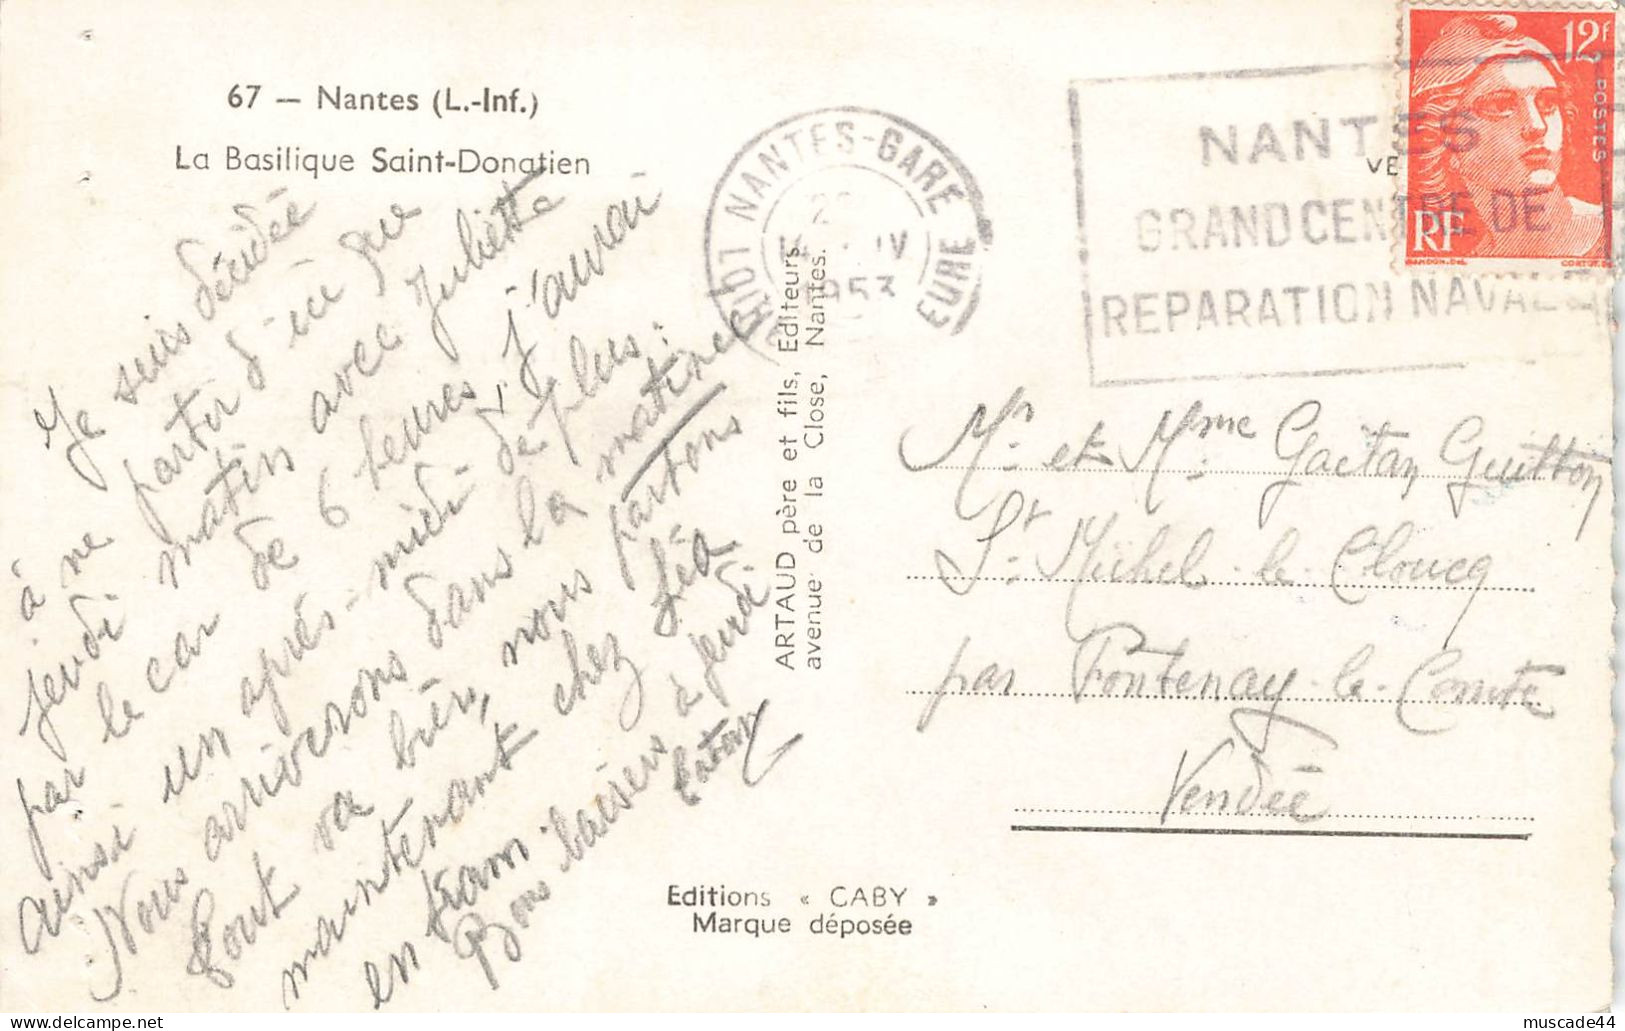 67 — Nantes (L.-Inf.)
La Basilique Saint-Donatien
Je suis décidée
à ne partir d'ici que
jeudi matin avec Juliette
par le car de 6 heures, j'aurai
ainsi un après-midi de plus.
Nous arriverons dans la matinée
tout va bien, nous partons
maintenant chez Léa
en tram
Bons baisers à jeudi
ARTAUD père et fils, Editeurs
avenue de la Close, Nantes.
NANTES-GARE
LOIRE INFEURE
IV
1953
NANTES
GRAND CENTRE DE
REPARATION NAVALE
VE
12F
POSTES
RF
GANDON.DEL
CORTOT.
Mr et Mme Gaëtan Guitton
St Michel-le-Cloucq
par Fontenay-le-Comte
Vendée
Editions « CABY »
Marque déposée
muscade44